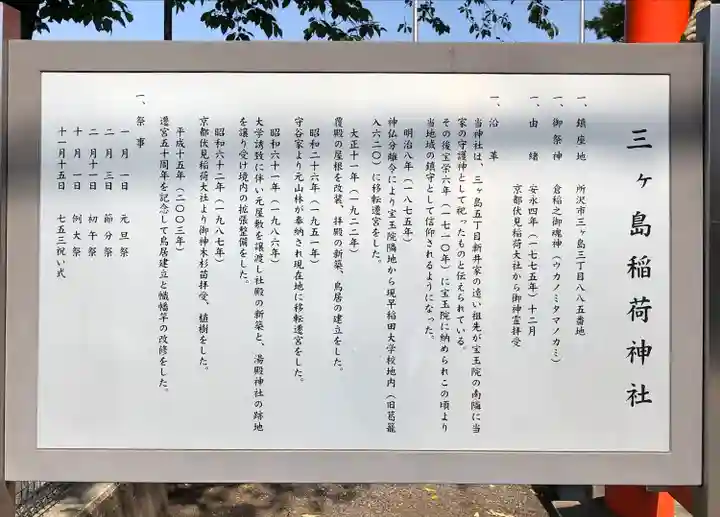 三ヶ島稲荷神社
一、鎮座地　所沢市三ヶ島三丁目八八五番地
一、御祭神　倉稲之御魂神（ウカノミタマノカミ）
一、由緒　安永四年（一七七五年）十二月
京都伏見稲荷大社から御神霊拝受
一、沿革
当神社は、三ヶ島五丁目新井家の遠い祖先が宝玉院の南隣に当
家の守護神として祀ったものと伝えられている。
その後宝永六年（一七一〇年）に宝玉院に納められこの頃より
当地域の鎮守として信仰されるようになった。
明治八年（一八七五年）
神仏分離令により宝玉院隣地から現早稲田大学校地内（旧葛籠
入六二〇）に移転遷宮をした。
大正十一年（一九二二年）
覆殿の屋根を改装、拝殿の新築、鳥居の建立をした。
昭和二十六年（一九五一年）
守谷家より元山林が奉納され現在地に移転遷宮をした。
昭和六十一年（一九八六年）
大学誘致に伴い元屋敷を譲渡し社殿の新築と、湯殿神社の跡地
を譲り受け境内の拡張整備をした。
昭和六十二年（一九八七年）
京都伏見稲荷大社より御神木杉苗拝受、植樹をした。
平成十五年（二〇〇三年）
遷宮五十周年を記念して鳥居建立と幟幡竿の改修をした。
一、祭事
一月一日　元旦祭
二月三日　節分祭
二月十一日　初午祭
十月一日　例大祭
十一月十五日　七五三祝い式